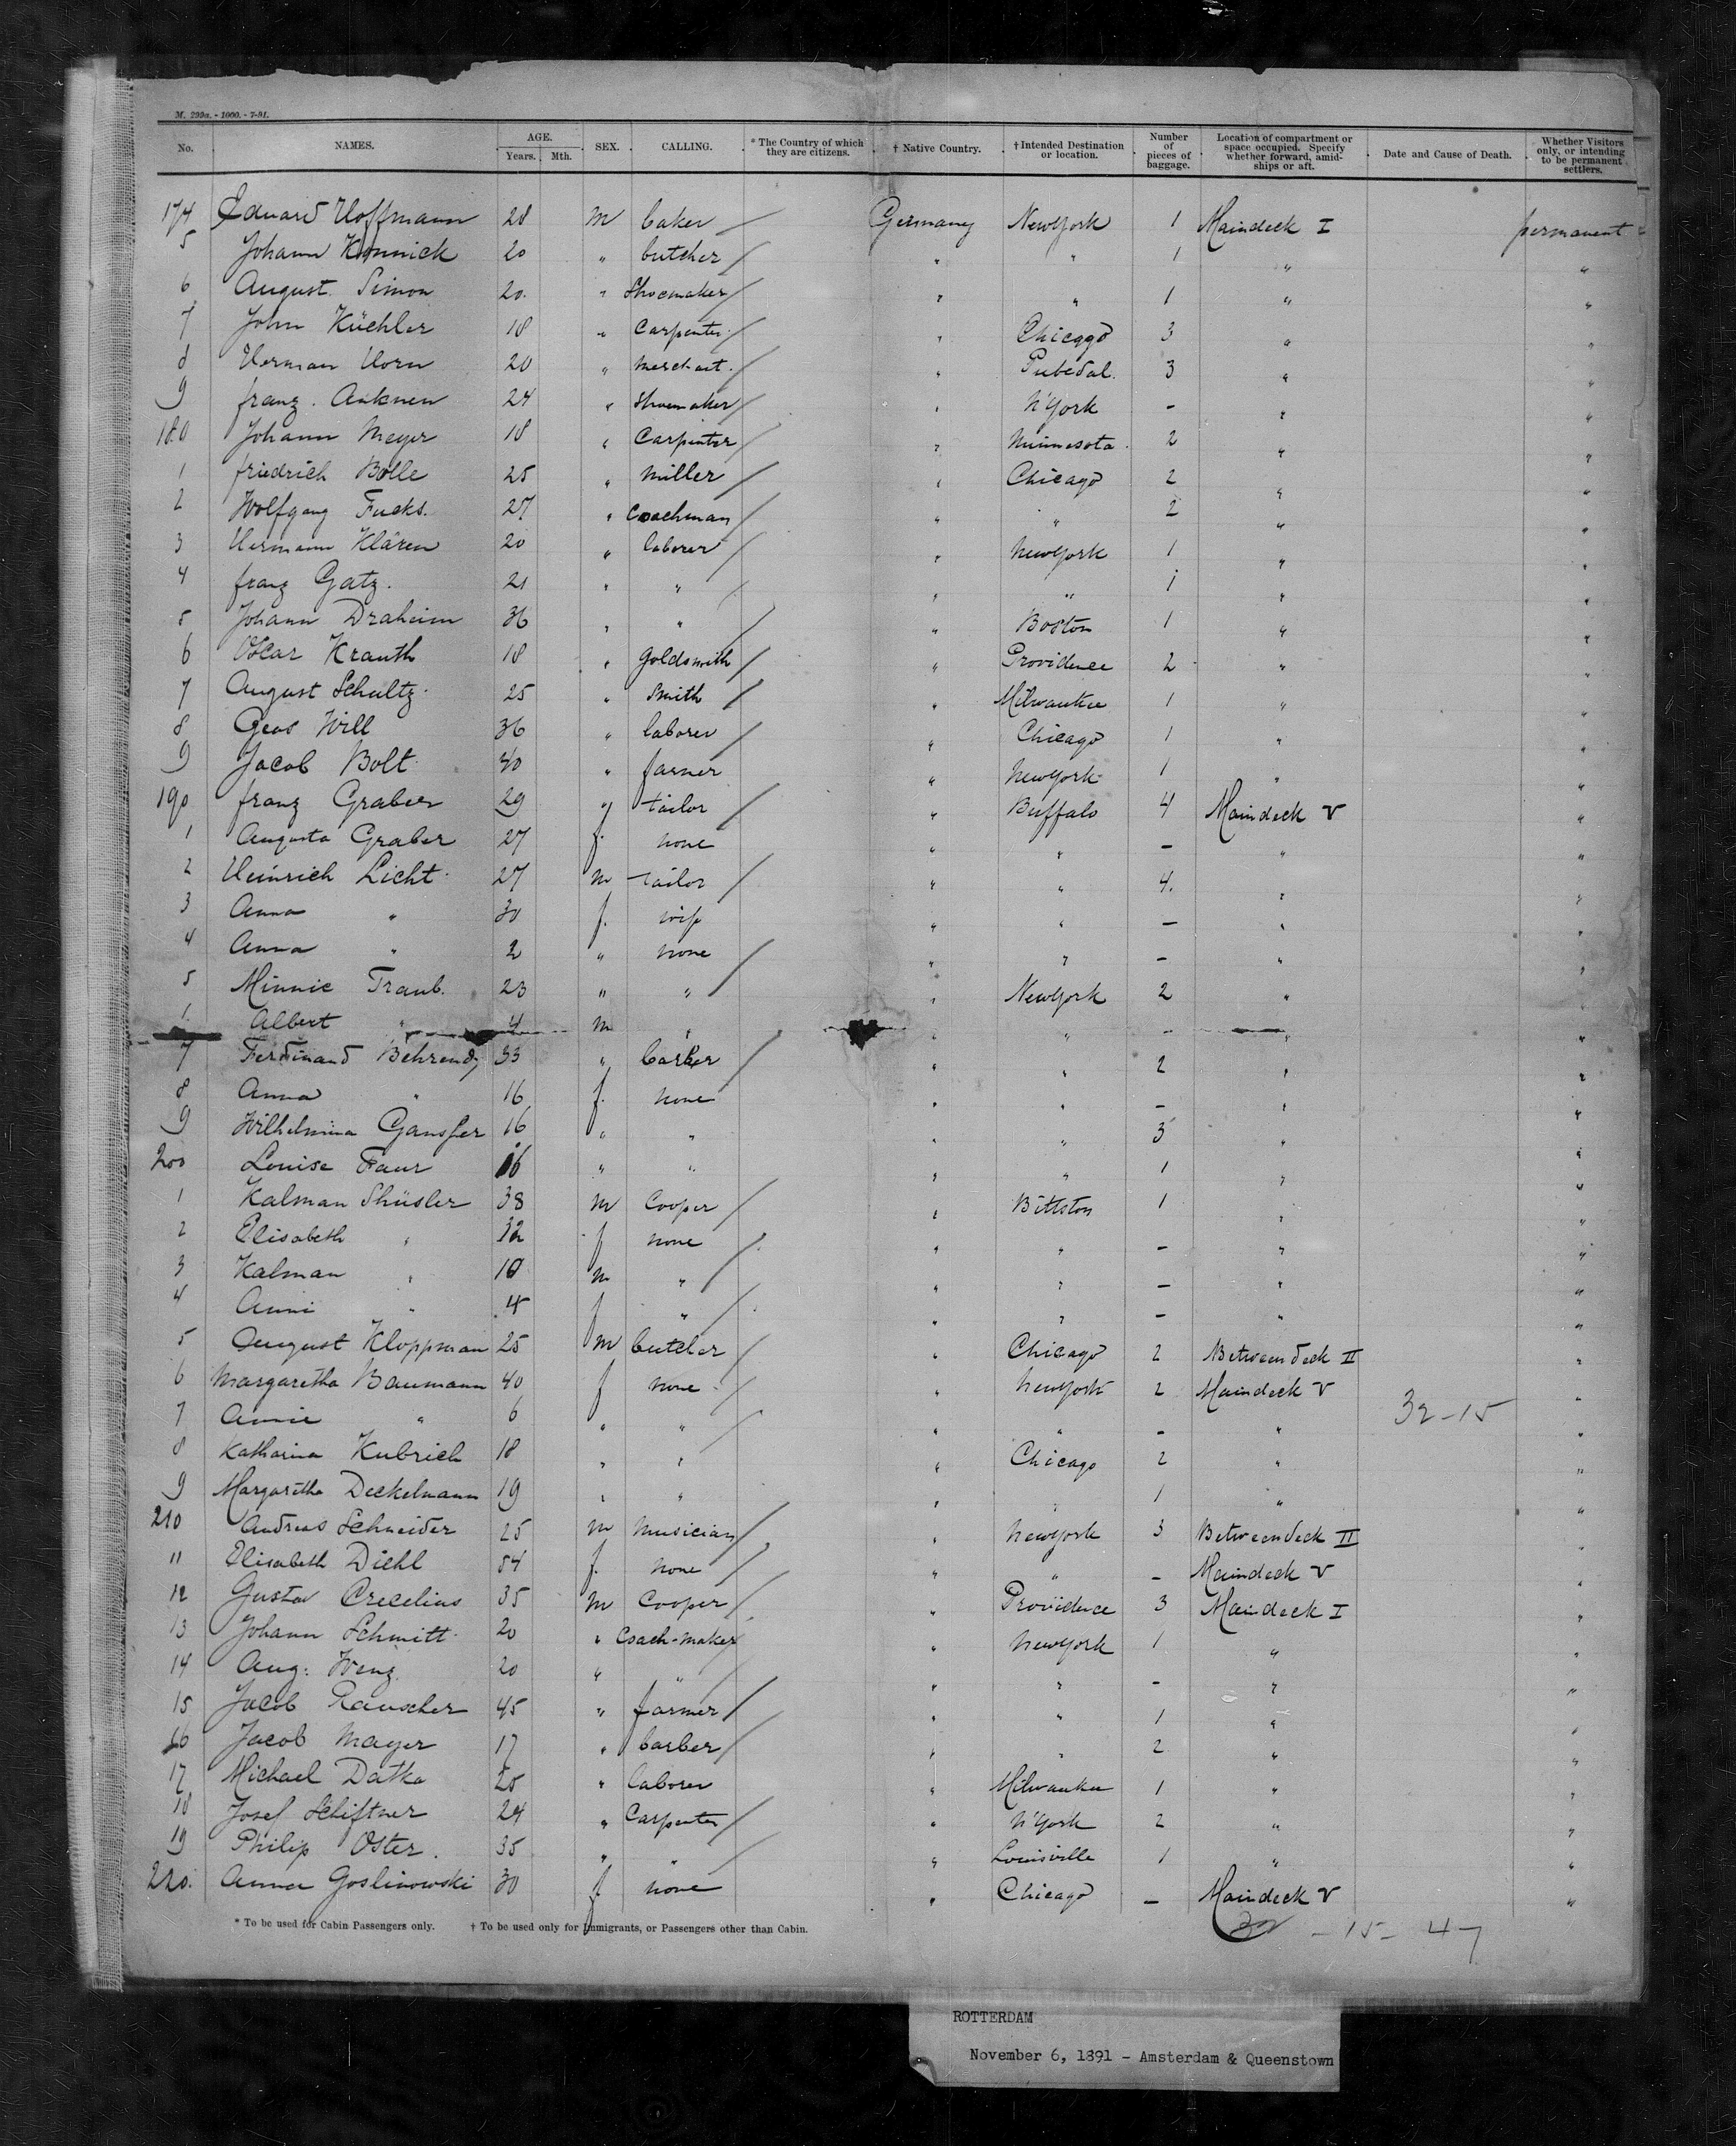 M. 299a. - 1000. - 7-91.
No. NAMES. AGE. Years. Mth. SEX. CALLING. * The Country of which they are citizens. † Native Country. † Intended Destination or location. Number of pieces of baggage. Location of compartment or space occupied. Specify whether forward, amidships or aft. Date and Cause of Death. Whether Visitors only, or intending to be permanent settlers.
174 Eduard Hoffmann 28 m baker / Germany New York 1 Maindeck I permanent
5 Johann Konnick 20 " butcher / " " 1 " "
6 August Simon 20. " Shoemaker / " " 1 " "
7 John Küchler 18 " Carpenter / " Chicago 3 " "
8 Herman Horn 20 " merchant. / " 3 " "
9 franz. 24 " Shoemaker / " N'York - " "
180 Johann Meyer 18 " Carpenter / " Minnesota 2 " "
1 friedrich Bolle 25 " miller / " Chicago 2 " "
2 Wolfgang Fucks. 27 " Coachman / " " 2 " "
3 Hermann Klären 20 " laborer / " New York 1 " "
4 franz Gatz. 21 " " / " " 1 " "
5 Johann Draheim 36 " " / " Boston 1 " "
6 Oscar Krauth 18 " goldsmith / " Providence 2 " "
7 August Schultz 25 " Smith / " Milwaukee 1 " "
8 Geos Will 36 " laborer / " Chicago 1 " "
9 Jacob Bolt 40 " farmer " New York 1 " "
190 franz Graber 29 " tailor / " Buffalo 4 Maindeck V "
1 Augusta Graber 27 f. none " " - " "
2 Heinrich Licht 27 m tailor / " " 4. " "
3 Anna " 30 f. wife " " - " "
4 Anna " 2 " none / " " - " "
5 Minnie Traub. 23 " " / " New York 2 " "
Albert " 4 m " " " - " "
7 Ferdinand Behrend 33 " barber / " " 2 " "
8 Anna " 16 f. none " " - " "
9 Wilhelmina Gansfer 16 " " " " 3 " "
200 Louise Faur 16 " " " " 1 " "
1 Kalman Shüsler 38 m Cooper / " Bittston 1 " "
2 Elisabeth " 32 f none / " " - " "
3 Kalman " 10 m " / " " - " "
4 Anni " 4 f " / " " - " "
5 August Kloppman 25 m butcher / " Chicago 2 Betweendeck II "
6 Margaretha Baumann 40 f none / " New York 2 Maindeck V "
7 Annie " 6 " " / " " - " 32-15 "
8 Katharina Kubrich 18 " " " Chicago 2 " "
9 Margaretha Deckelmann 19 " " " " 1 " "
210 Andreas Schneider 25 m musician / " New York 3 Betweendeck II "
11 Elisabeth Diehl 54 f. none / " " - Maindeck V "
12 Gustav Crecelius 35 m Cooper / " Providence 3 Maindeck I "
13 Johann Schmitt 20 " Coach-maker " New York 1 " "
14 Aug. Wenz 20 " " / " " - " "
15 Jacob Rauscher 45 " farmer / " " 1 " "
16 Jacob Mayer 17 " barber / " " 2 " "
17 Michael Datka 25 " laborer " Milwaukee 1 " "
18 Josef Schiftner 24 " Carpenter / " N'York 2 " "
19 Philip Oster. 35 " " / " Louisville 1 " "
220. Anna Goslinowski 30 f none " Chicago - Maindeck V "
* To be used for Cabin Passengers only. † To be used only for Immigrants, or Passengers other than Cabin.
32 - 15 - 47
ROTTERDAM
November 6, 1891 - Amsterdam & Queenstown